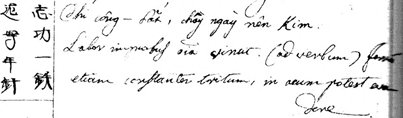 志功一鉄
年針
Chí công – sắt, chầy ngày nên Kim.
Labor improbus oia vincit. (ad verbum) ferrũ
etiam constanter tritum, in acum potest eva
dere